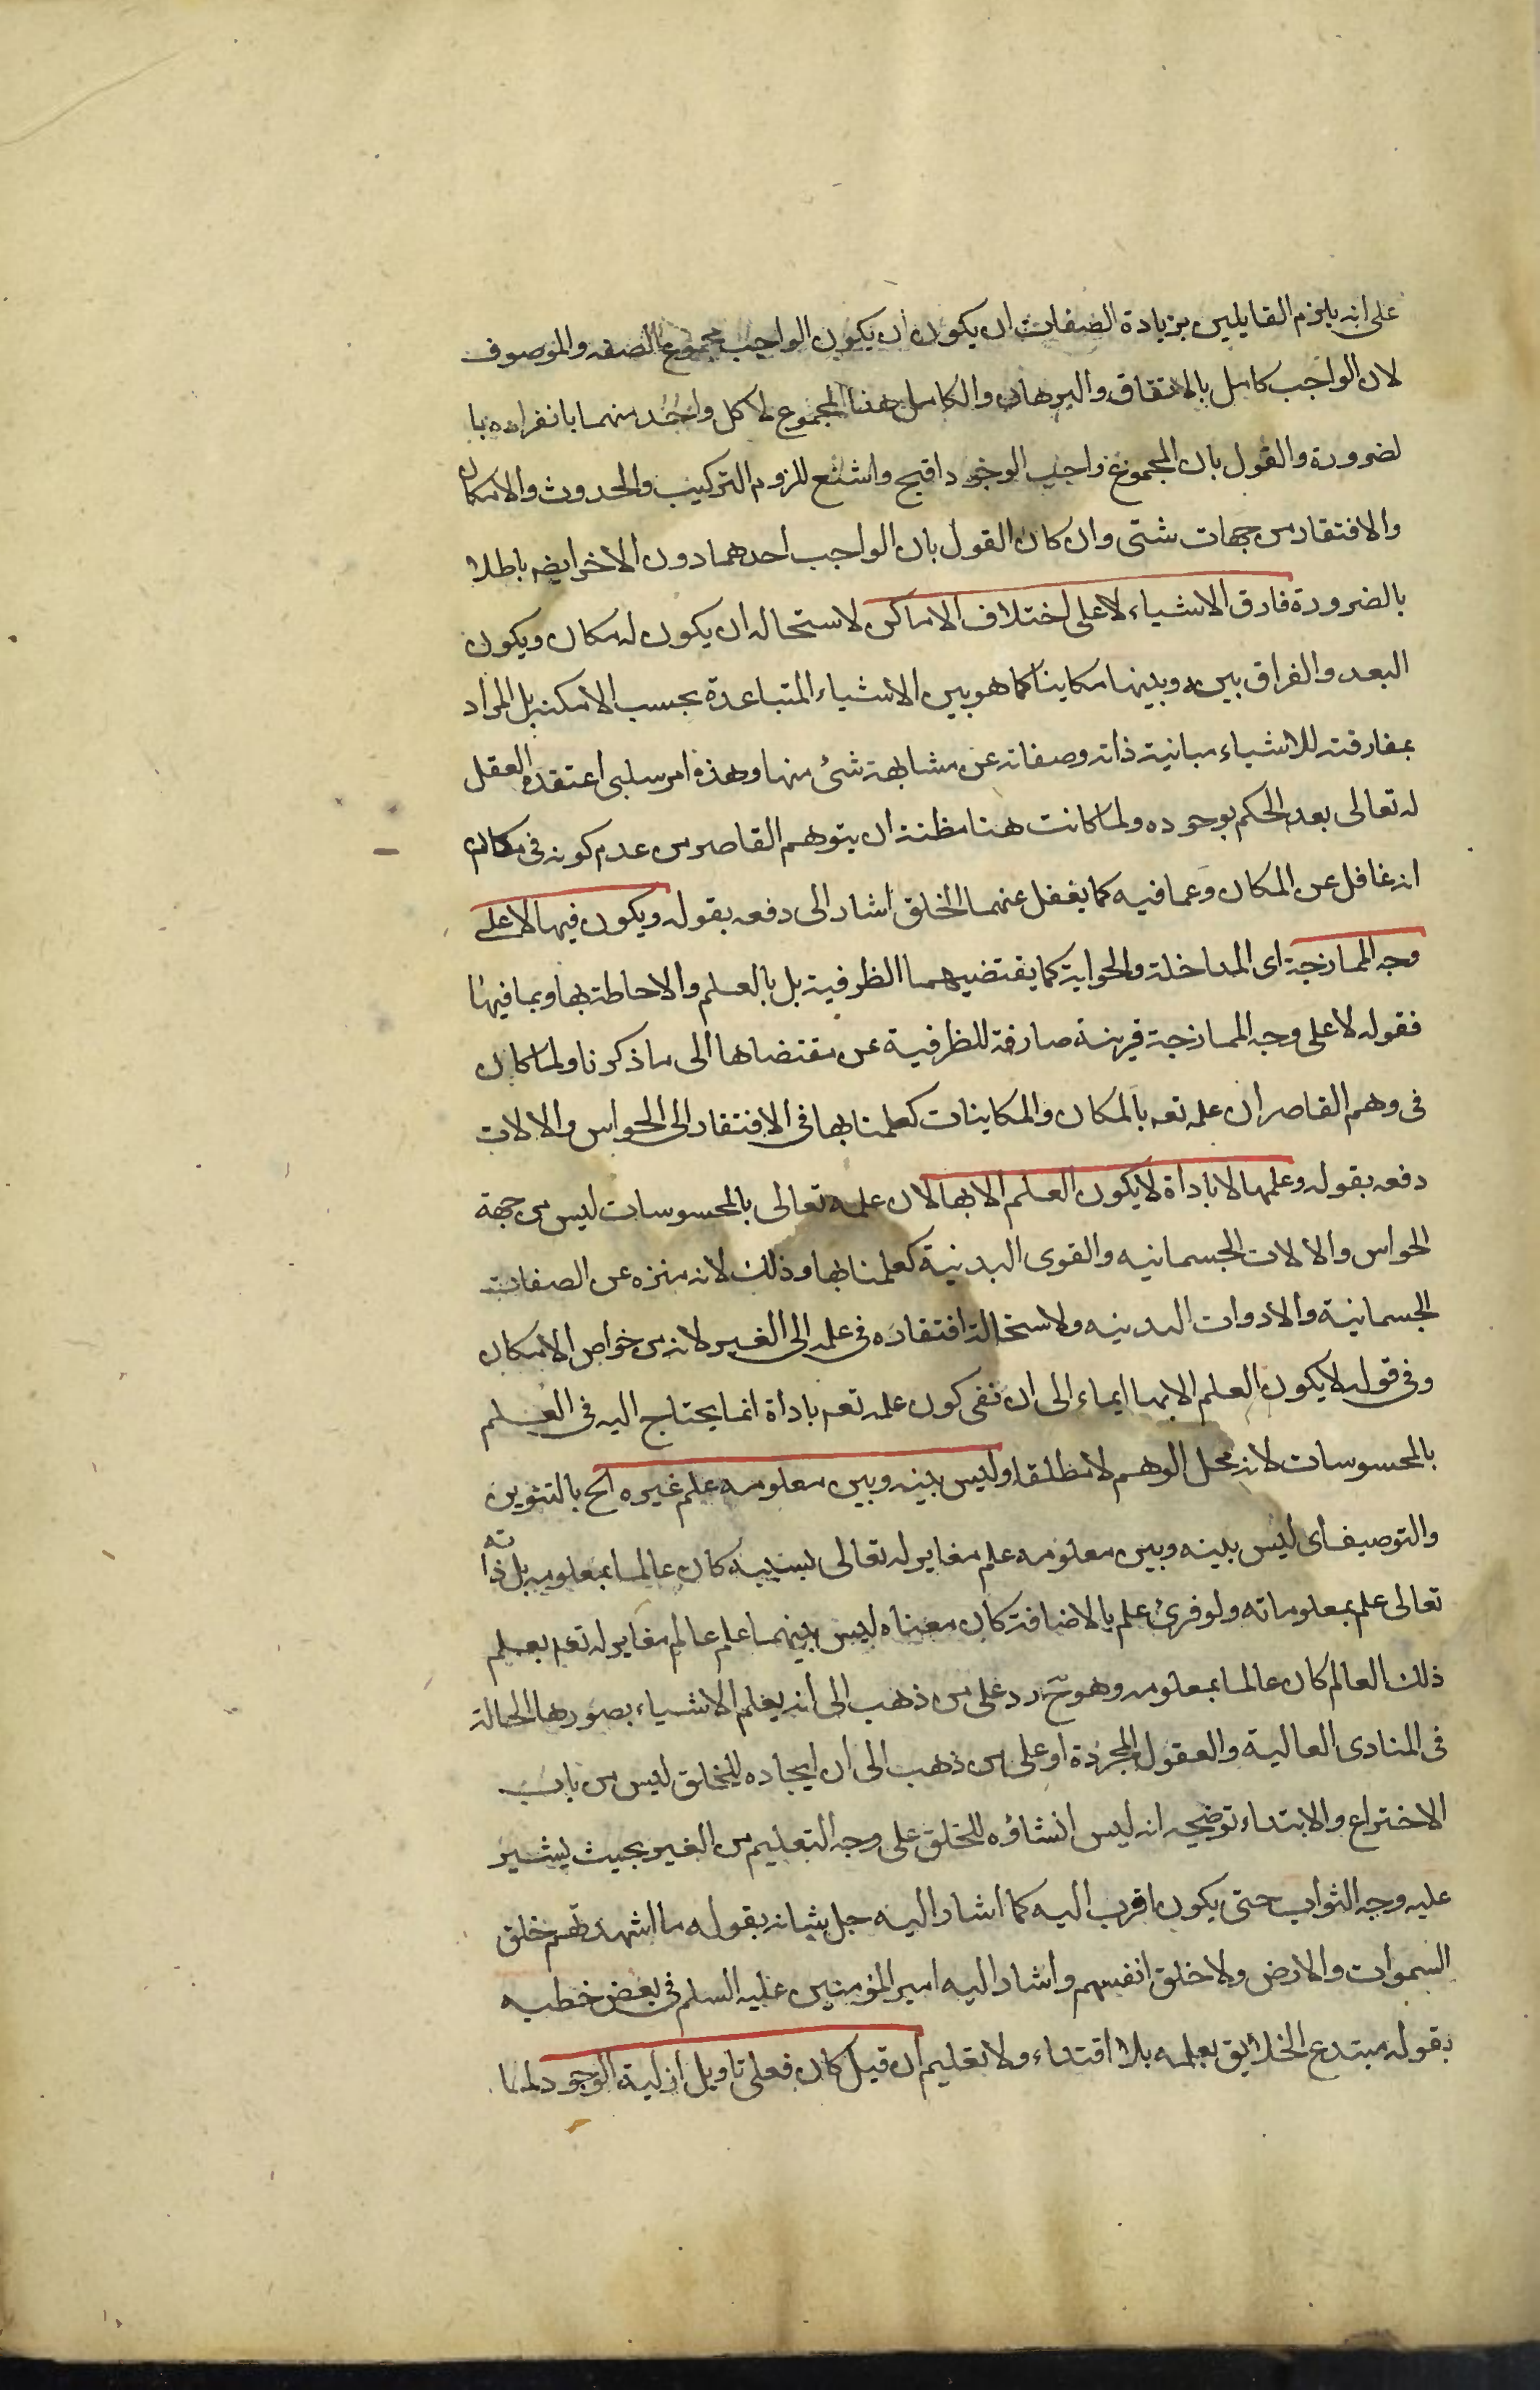 على انه يلزم القايلين بزيادة الصفات ان يكون ان يكون الواجب مجموع الصفه والموصوف
لان الواجب كامل بالاتفاق والبرهان والكامل هنا المجموع لا كل واحد منهما بانفراده با
لضرورة والقول بان المجموع واجب الوجود اقبح واشنع للزوم التركيب والحدوث والامكان
والافتقار من جهات شتى وان كان القول بان الواجب احدهما دون الاخر ايضه باطلا
بالضرورة فارق الاشياء لا على اختلاف الاماكن لاستحاله ان يكون له مكان ويكون
البعد والفراق بينه وبينها مكاينا كما هو بين الاشياء المتباعدة بحسب الامكنه بل المراد
بمفارقته للاشياء مباينة ذاته وصفاته عن مشابهة شئ منها وهذه امر سلبى اعتقده العقل
له تعالى بعد الحكم بوجوده ولما كانت هنا مظنة ان يتوهم القاصر من عدم كونه فى مكان
انه غافل عن المكان وعما فيه كما يغفل عنهما الخلق اشار الى دفعه بقوله ويكون فيها لا على
وجه الممازجة اى المداخلة والحواية كما يقتضيهما الظرفية بل بالعلم والاحاطة بها وبما فيها
فقوله لا على وجه الممازجة قرينة صارفة للظرفية عن مقتضاها الى ما ذكرنا ولما كان
فى وهم القاصر ان علمه تعه بالمكان والمكاينات كعلمنا بها فى الافتقار الى الحواس والالات
دفعه بقوله وعلمها لا باداة لا يكون العلم الا بها لان علمه تعالى بالمحسوسات ليس من جهة
الحواس والالات الجسمانيه والقوى البدنية كعلمنا بها وذلك لانه منزه عن الصفات
الجسمانية والادوات البدنيه ولاستحالة افتقاره فى علمه الى الغير لانه من خواص الامكان
وفى قوله لا يكون العلم الا بها ايماء الى ان نفى كون علمه تعه باداة انما يحتاج اليه فى العلم
بالمحسوسات لانه محل الوهم لا مطلقا وليس بينه وبين معلومه علم غيره الخ بالتنوين
والتوصيف اى ليس بينه وبين معلومه علم مغاير له تعالى بسببه كان عالما بمعلومه بل ذاته
تعالى علم بمعلوماته ولو قرئ علم بالاضافة كان معناه ليس بينهما علم عالم مغاير له تعه بعلم
ذلك العالم كان عالما بمعلومه وهو ح رد على من ذهب الى انه يعلم الاشياء بصورها الحالة
فى المنادى العالية والعقول المجردة او على من ذهب الى ان ايجاده للخلق ليس من باب
الاختراع والابتداء توضيحه انه ليس انشاؤه للخلق على وجه التعليم من الغير بحيث يشير
عليه وجه الثواب حتى يكون اقرب اليه كما اشار اليه جل شانه بقوله ما اشهدتهم خلق
السموات والارض ولا خلق انفسهم واشار اليه امير المؤمنين عليه السلم فى بعض خطبه
بقوله مبتدع الخلايق بعلمه بلا اقتداء ولا تعليم ان قيل كان فعلى تاويل ازلية الوجود لما